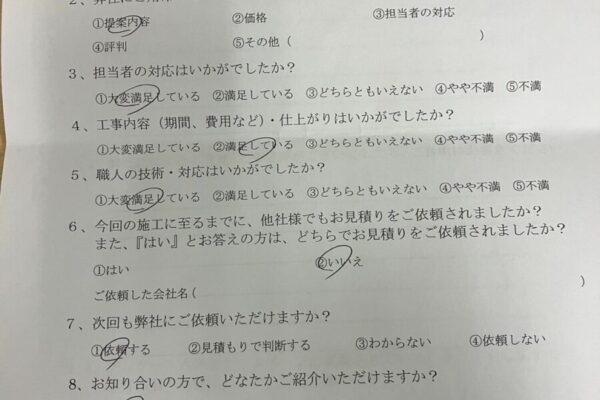 ①提案内容 ②価格 ③担当者の対応
④評判 ⑤その他（ ）
3、担当者の対応はいかがでしたか？
①大変満足している ②満足している ③どちらともいえない ④やや不満 ⑤不満
4、工事内容（期間、費用など）・仕上がりはいかがでしたか？
①大変満足している ②満足している ③どちらともいえない ④やや不満 ⑤不満
5、職人の技術・対応はいかがでしたか？
①大変満足している ②満足している ③どちらともいえない ④やや不満 ⑤不満
6、今回の施工に至るまでに、他社様でもお見積りをご依頼されましたか？
また、『はい』とお答えの方は、どちらでお見積りをご依頼されましたか？
①はい ②いいえ
ご依頼した会社名（ ）
7、次回も弊社にご依頼いただけますか？
①依頼する ②見積もりで判断する ③わからない ④依頼しない
8、お知り合いの方で、どなたかご紹介いただけますか？